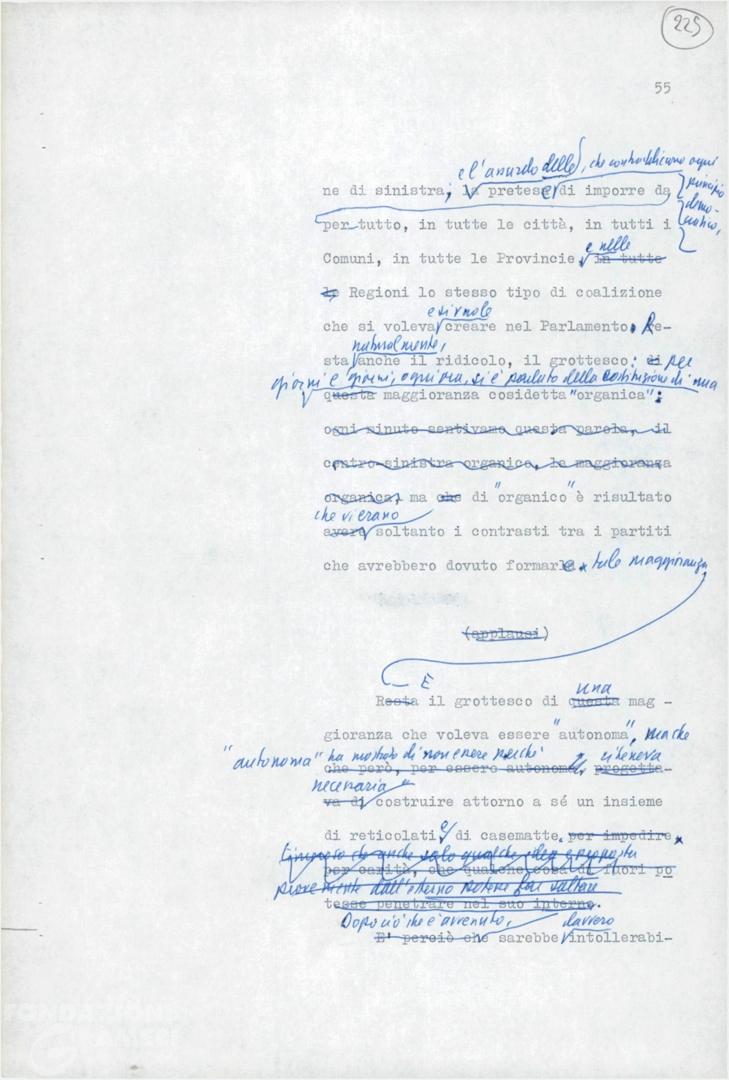 225
55
e l'assurdo delle, che contraddicono ogni
ne di sinistra; la pretese di imporre da principio
per tutto, in tutte le città, in tutti i demo-
cratico,
e nelle
Comuni, in tutte le Provincie, in tutte
le Regioni lo stesso tipo di coalizione
e si vuole
che si voleva creare nel Parlamento. Re-
naturalmente,
sta anche il ridicolo, il grottesco: per
giorni e giorni, ogni ora, si è parlato della costituzione di una
questa maggioranza cosidetta "organica";
ogni minuto sentivamo questa parola, il
centro-sinistra organico, la maggioranza
organica, ma che di "organico" è risultato
che vi erano
avere soltanto i contrasti tra i partiti
che avrebbero dovuto formare tale maggioranza
(applausi)
E una
Resta il grottesco di questa mag -
gioranza che voleva essere "autonoma", ma che
"autonoma" ha mostrato di non essere poiché riteneva
che però, per essere autonoma, progetta-
necessaria
va di costruire attorno a sé un insieme
e
di reticolati, di casematte, per impedire,
timorosa che anche solo qualche idea e proposta
per carità, che qualche cosa di fuori po
dall'esterno potesse far saltare
tesse penetrare nel suo interno.
Dopo ciò che è avvenuto, davvero
E' perciò che sarebbe intollerabi-
FONDAZIONE
GRAMSCI